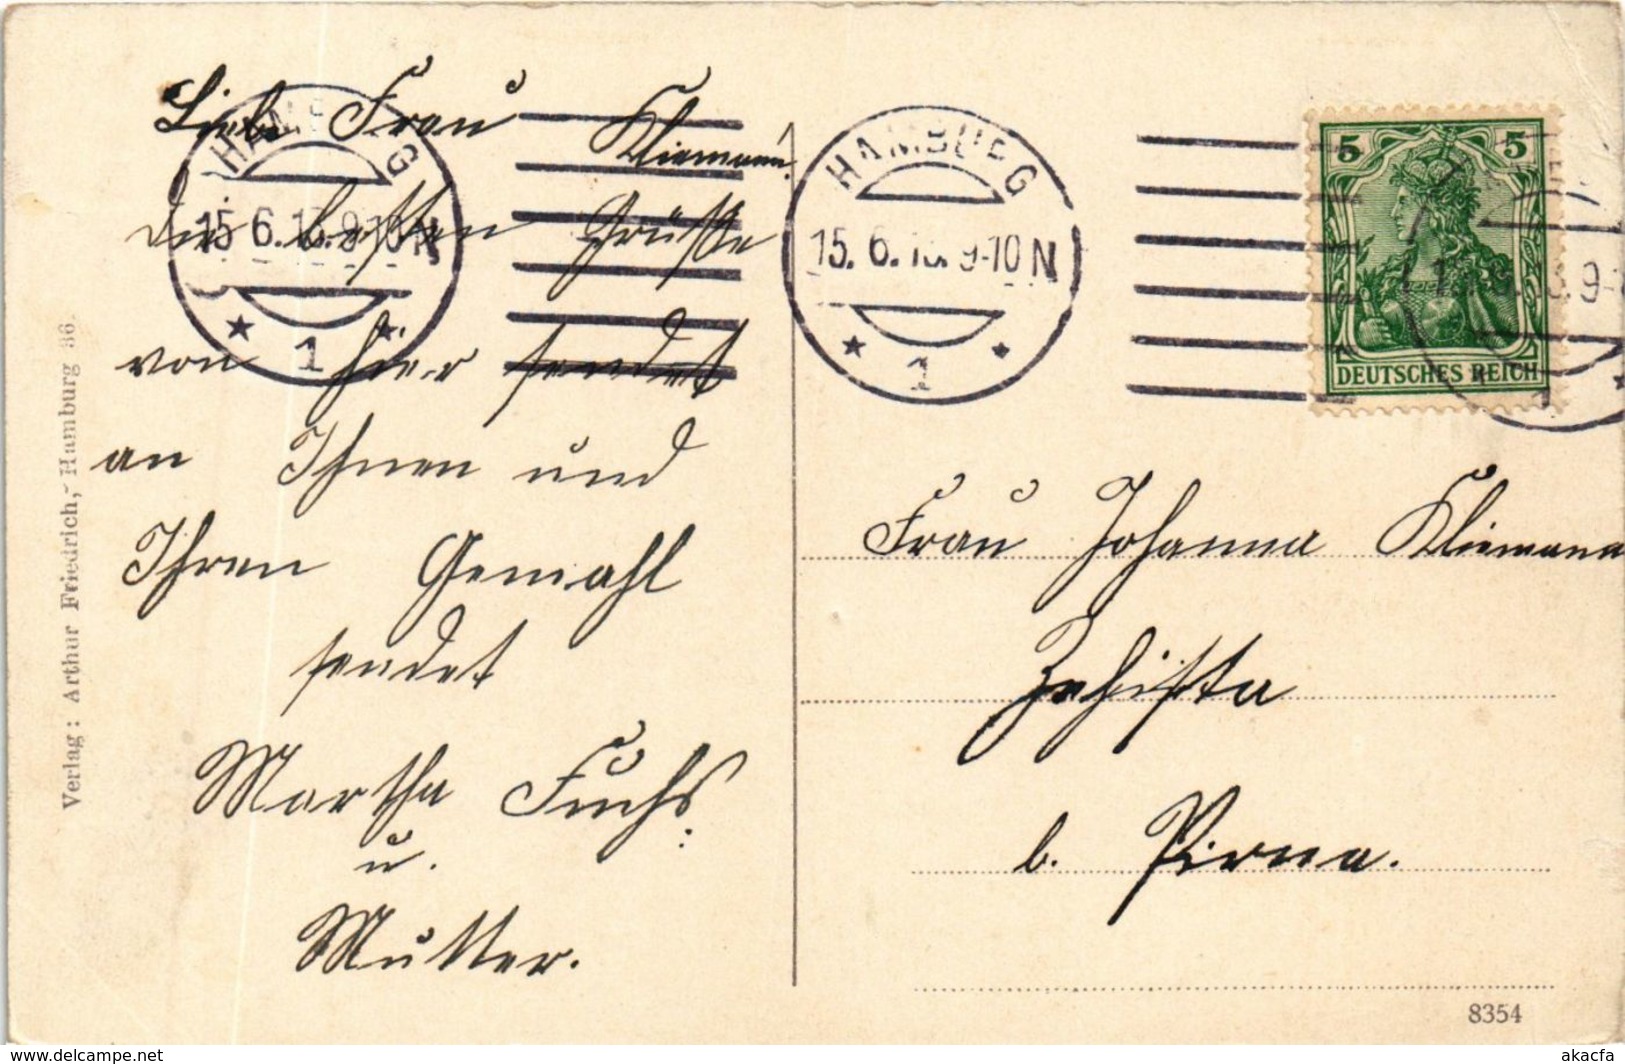 Liebe Frau
Kliemann.
Die besten Grüsse
von hier sendet
an Ihnen und
Ihren Gemahl
sendet
Martha Fuchs
u.
Mutter.
Verlag: Arthur Friedrich, Hamburg 36.
HAMBURG
15. 6. 9-10 N
1
HAMBURG
15. 6. 9-10 N
1
5 5
DEUTSCHES REICH
Frau Johanna Kliemann
Zehista
b. Pirna.
8354
akacfa
www.delcampe.net